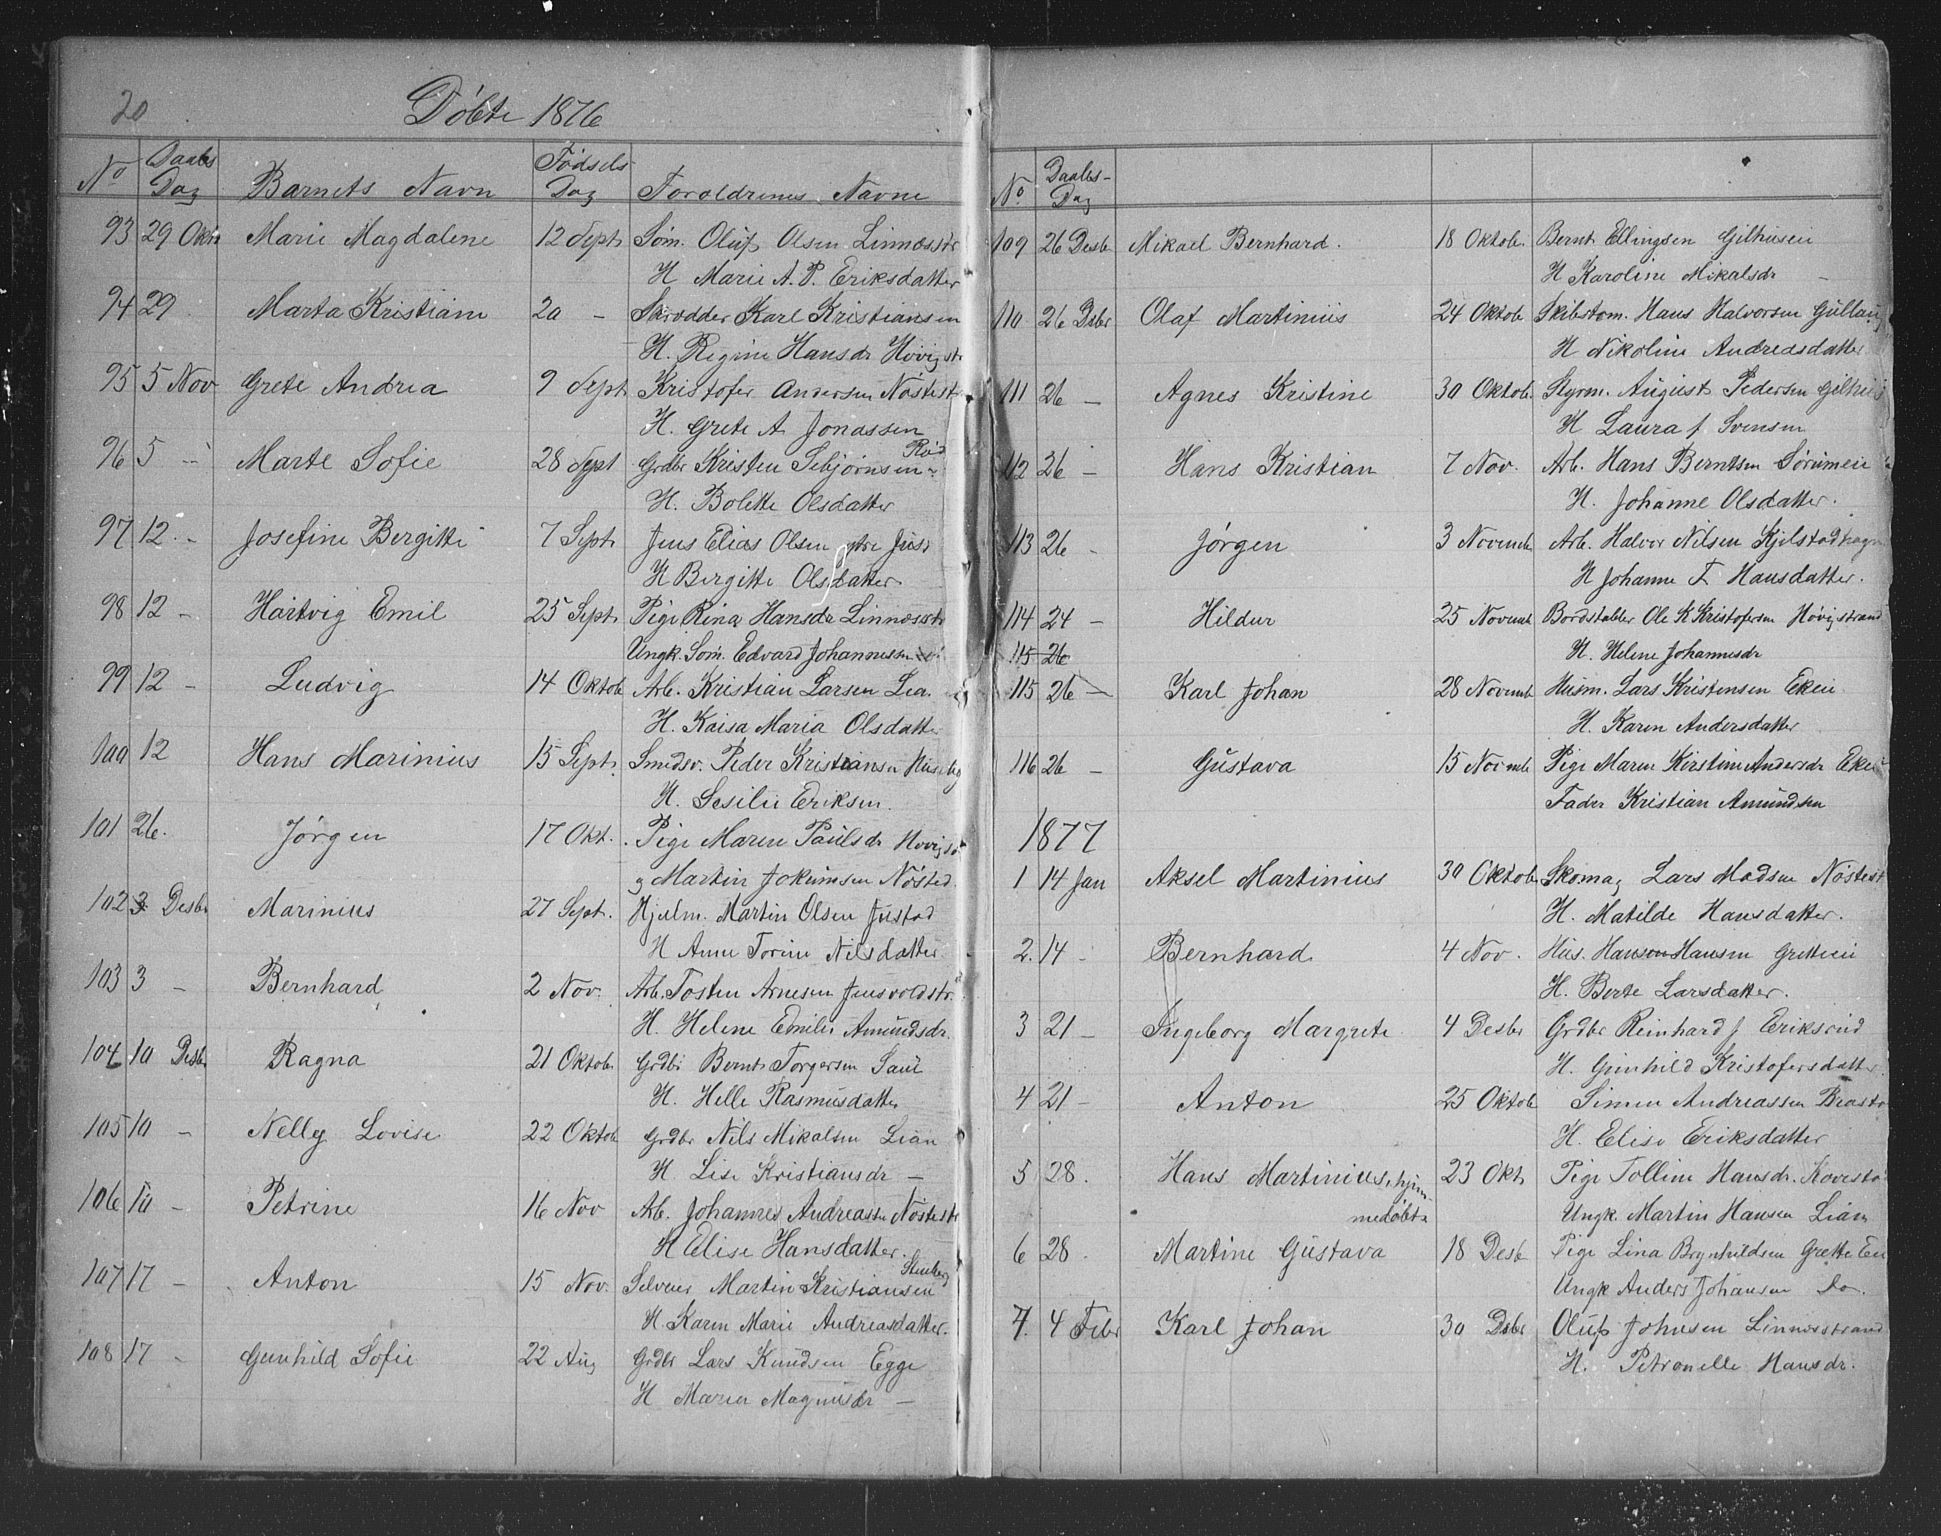 20
Döbte 1876
No Daabs Dag Barnets Navn Födsels Dag Foroldrenes Navne
93 29 Okt Marie Magdalene 12 Sept Söm. Oluf Olsen Linnæsstr
H Marie A. P. Eriksdatter
94 29 Marta Kristiane 20 - Skrædder Karl Kristiansen
H. Regine Hansdr Hövigst
95 5 Nov Grete Andrea 9 Sept Kristofer Andersen Nöstest
H. Grete A Jonassen
96 5 - Marte Sofie 28 Sept Grdbr Kristen Sebjörnsen Röd
H. Bolette Olsdatter
97 12 - Josefine Bergitte 7 Sept Jens Elias Olsen
H Bergitte Olsdatter
98 12 - Hartvig Emil 25 Sept Pige Rina Hansdr Linnæsstr
Ungk. Söm. Edvard Johannesen
99 12 - Ludvig 14 Oktob Arb. Kristian Larsen Lea
H. Kaisa Maria Olsdatter
100 12 Hans Marinius 15 Sept. Smedsv. Peder Kristiansen
H. Sesilie Eriksen.
101 26. Jörgen 17 Okt. Pige Maren Paulsdr
og Martin Jokumsen Nösted
102 3 Desbr Marinius 27 Sept. Hjulm. Martin Olsen Justad
H Anne Torine Nilsdatter
103 3 - Bernhard 2 Nov. Arb. Tosten Arnesen Jensvoldstr.
H. Helene Emilie Amundsdr.
104 10 Desbr Ragna 21 Oktob Grdbr Bernt Torgersen
H. Helle Rasmusdatter
105 10 - Nelly Lovise 22 Oktob Grdbr Nils Mikalsen Lian
H. Lise Kristiansdr -
106 10 - Petrine 16 Nov Arb. Johannes Andreasen Nöstestr
H Elise Hansdatter.
107 17 - Anton 15 Nov. Selveier Martin Kristiansen Stenberg
H. Karen Marie Andreasdatter.
108 17 - Gunhild Sofie 22 Aug Grdbr Lars Knudsen Egge
H Maren Magnusdr -
No. Daabs-Dag
109 26 Desb Mikael Bernhard. 18 Oktob. Bernt Ellingsen Gilhuseie
H Karoline Mikalsdr -
110 26 Dsbr Olaf Martinius 24 Oktob Skibstöm. Hans Halvorsen Gullaug
H Nikoline Andreasdatter
111 26 - Agnes Kristine 30 Oktob. Styrm. August Pedersen Gilhus
H Laura f Svensen
112 26 - Hans Kristian 7 Nov. Arb. Hans Berntsen Sörumeie
H. Johanne Olsdatter.
113 26 - Jörgen 3 Novemb Arb. Halvor Nilsen Kjelstadhagen
H Johanne F. Hansdatter.
114 24 - Hildur 25 Novemb Bordstabler Ole K Kristofersen Hövigstrand
115 26 H. Helene Johannesdr
115 26 - Karl Johan 28 Novemb Husm. Lars Kristensen Ekeie
H. Karen Andersdatter
116 26 - Gustava 15 Novemb Pige Maren Kirstine Andersdr Ekeie
Fader Kristian Amundsen
1877
1 14 Jan Aksel Martinius 30 Oktob Skomag Lars Madsen Nöstest
H. Matilde Hansdatter.
2. 14 - Bernhard 4 Nov. Hus. Hanson Hansen Gretteeie
H. Berte Larsdatter.
3 21 - Ingeborg Margrete 4 Desbr Grdbr Reinhard J Eriksrud
H. Gunhild Kristofersdatter
4 21 - Anton 25 Oktob Simen Andreassen
H. Elise Eriksdatter
5 28. Hans Martinius, hjem- 23 Okt Pige Tolline Hansdr.
medöbt Ungk. Martin Hansen Lian
6 28. Martine Gustava 18 Desb Pige Lina Brynhildsen Grette Eie
Ungk Anders Johansen Do.
7. 4 Febr Karl Johan 30 Dsbr Oluf Johnsen Linnesstrand
H. Petronelle Hansdr.